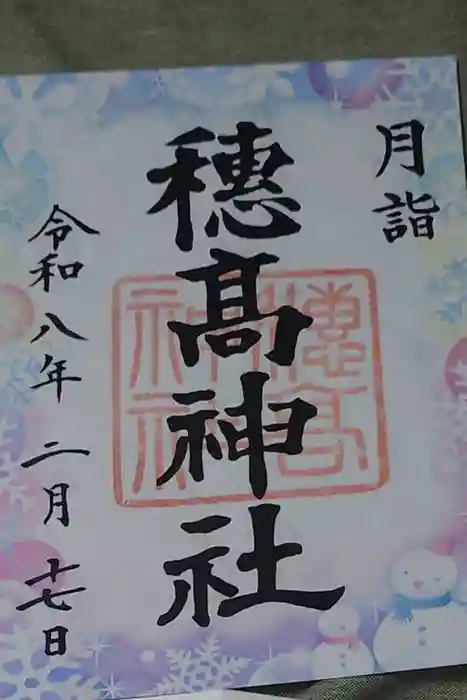 月詣
穂髙神社
穂高神社
令和八年二月十七日